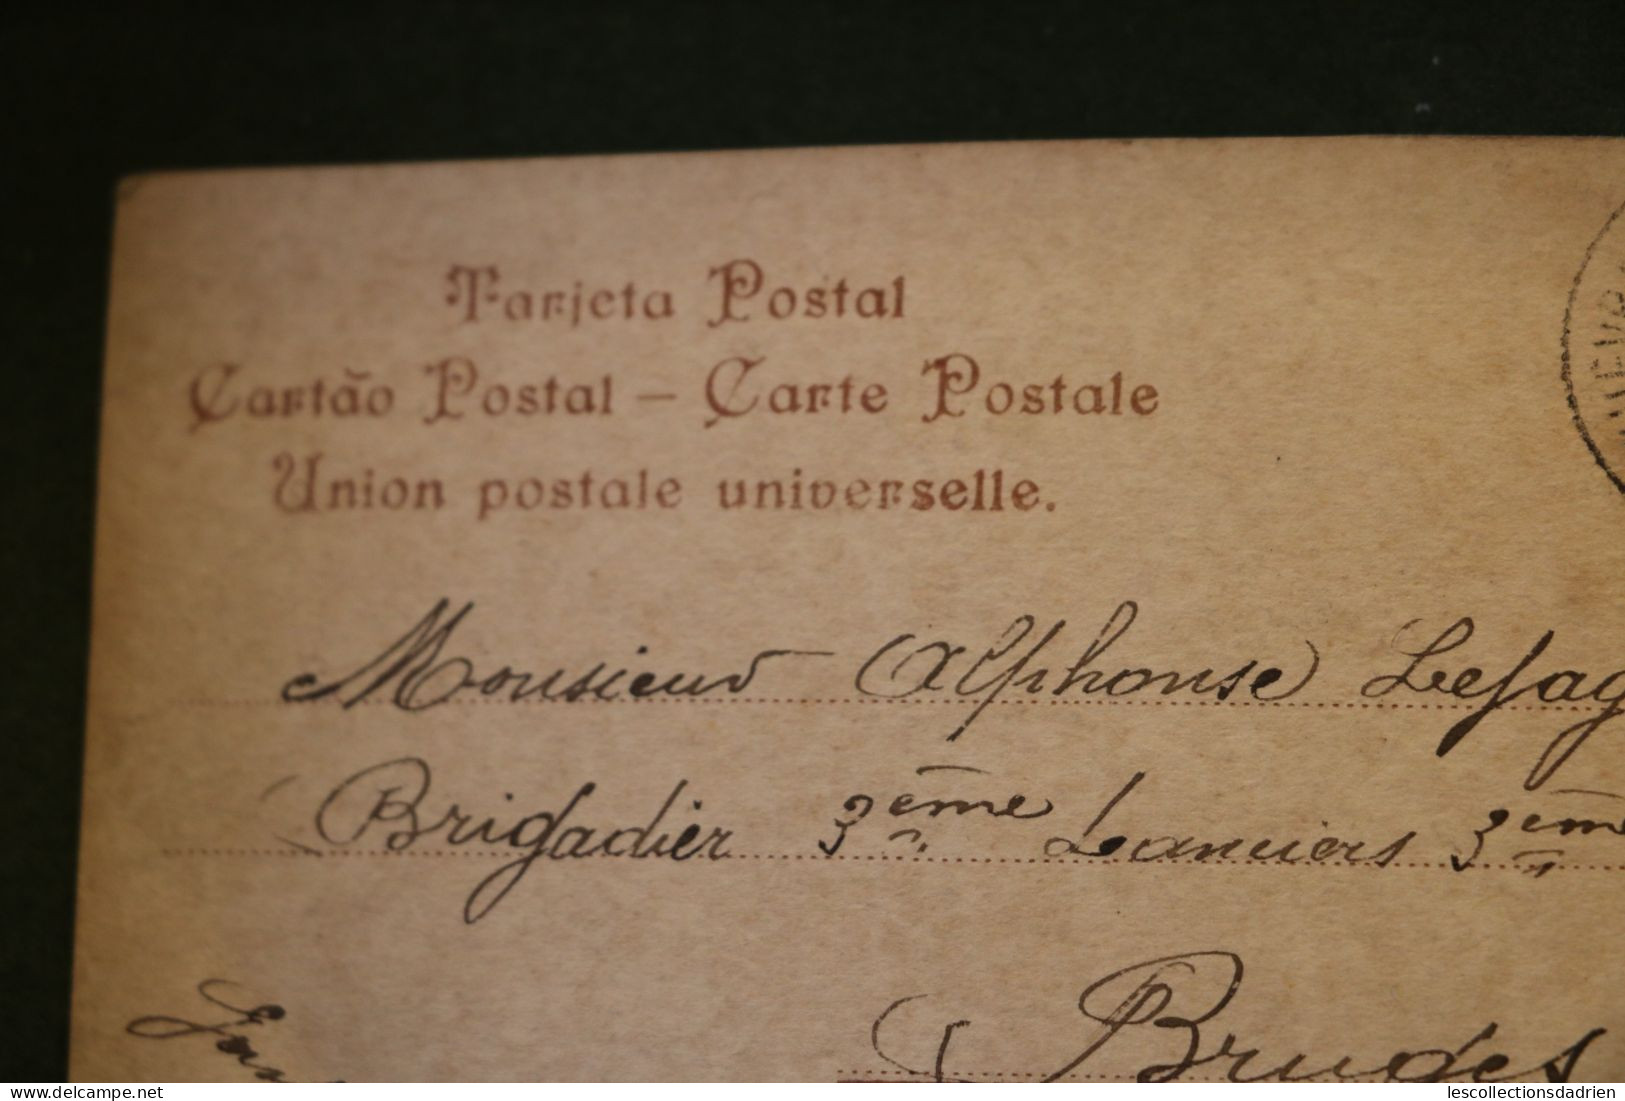 Tarjeta Postal
Cartão Postal – Carte Postale
Union postale universelle.
Monsieur Alphonse Lefag
Brigadier 3ème Lanciers 3ème
Bruges
delcampe.net
lescollectionsdadrien